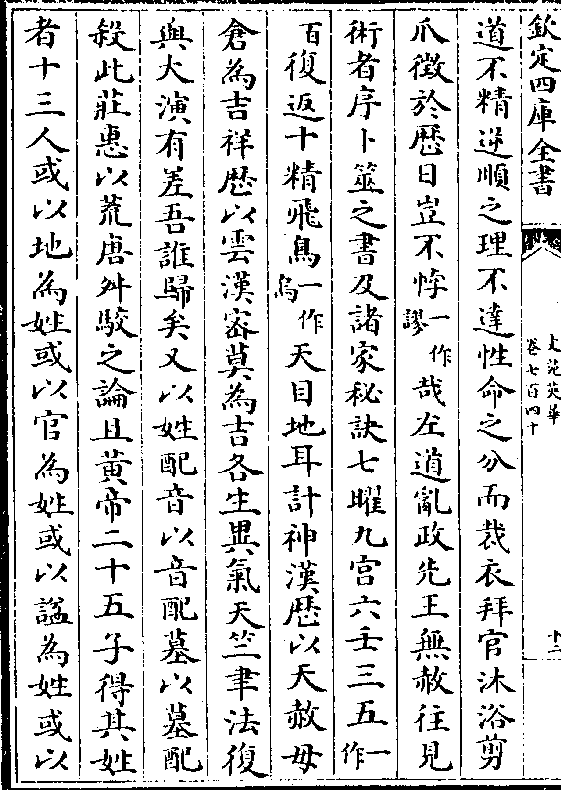 欽定四庫全書
文苑英華
卷七百四十
十二
道不精逆順之理不達性命之分而裁衣拜官沐浴剪
爪徴於厯日豈不悖一作謬哉左道亂政先王無赦往見
術者序卜筮之書及諸家秘訣七曜九宫六壬三五一作
百復返十精飛鳥一作烏天目地耳計神漢厯以天赦毋
倉為吉祥厯以雲漢宻莫為吉各生異氣天竺聿法復
與大演有差吾誰歸矣又以姓配音以音配墓以墓配
殺此莊惠以荒唐舛駮之論且黄帝二十五子得其姓
者十三人或以地為姓或以官為姓或以諡為姓或以